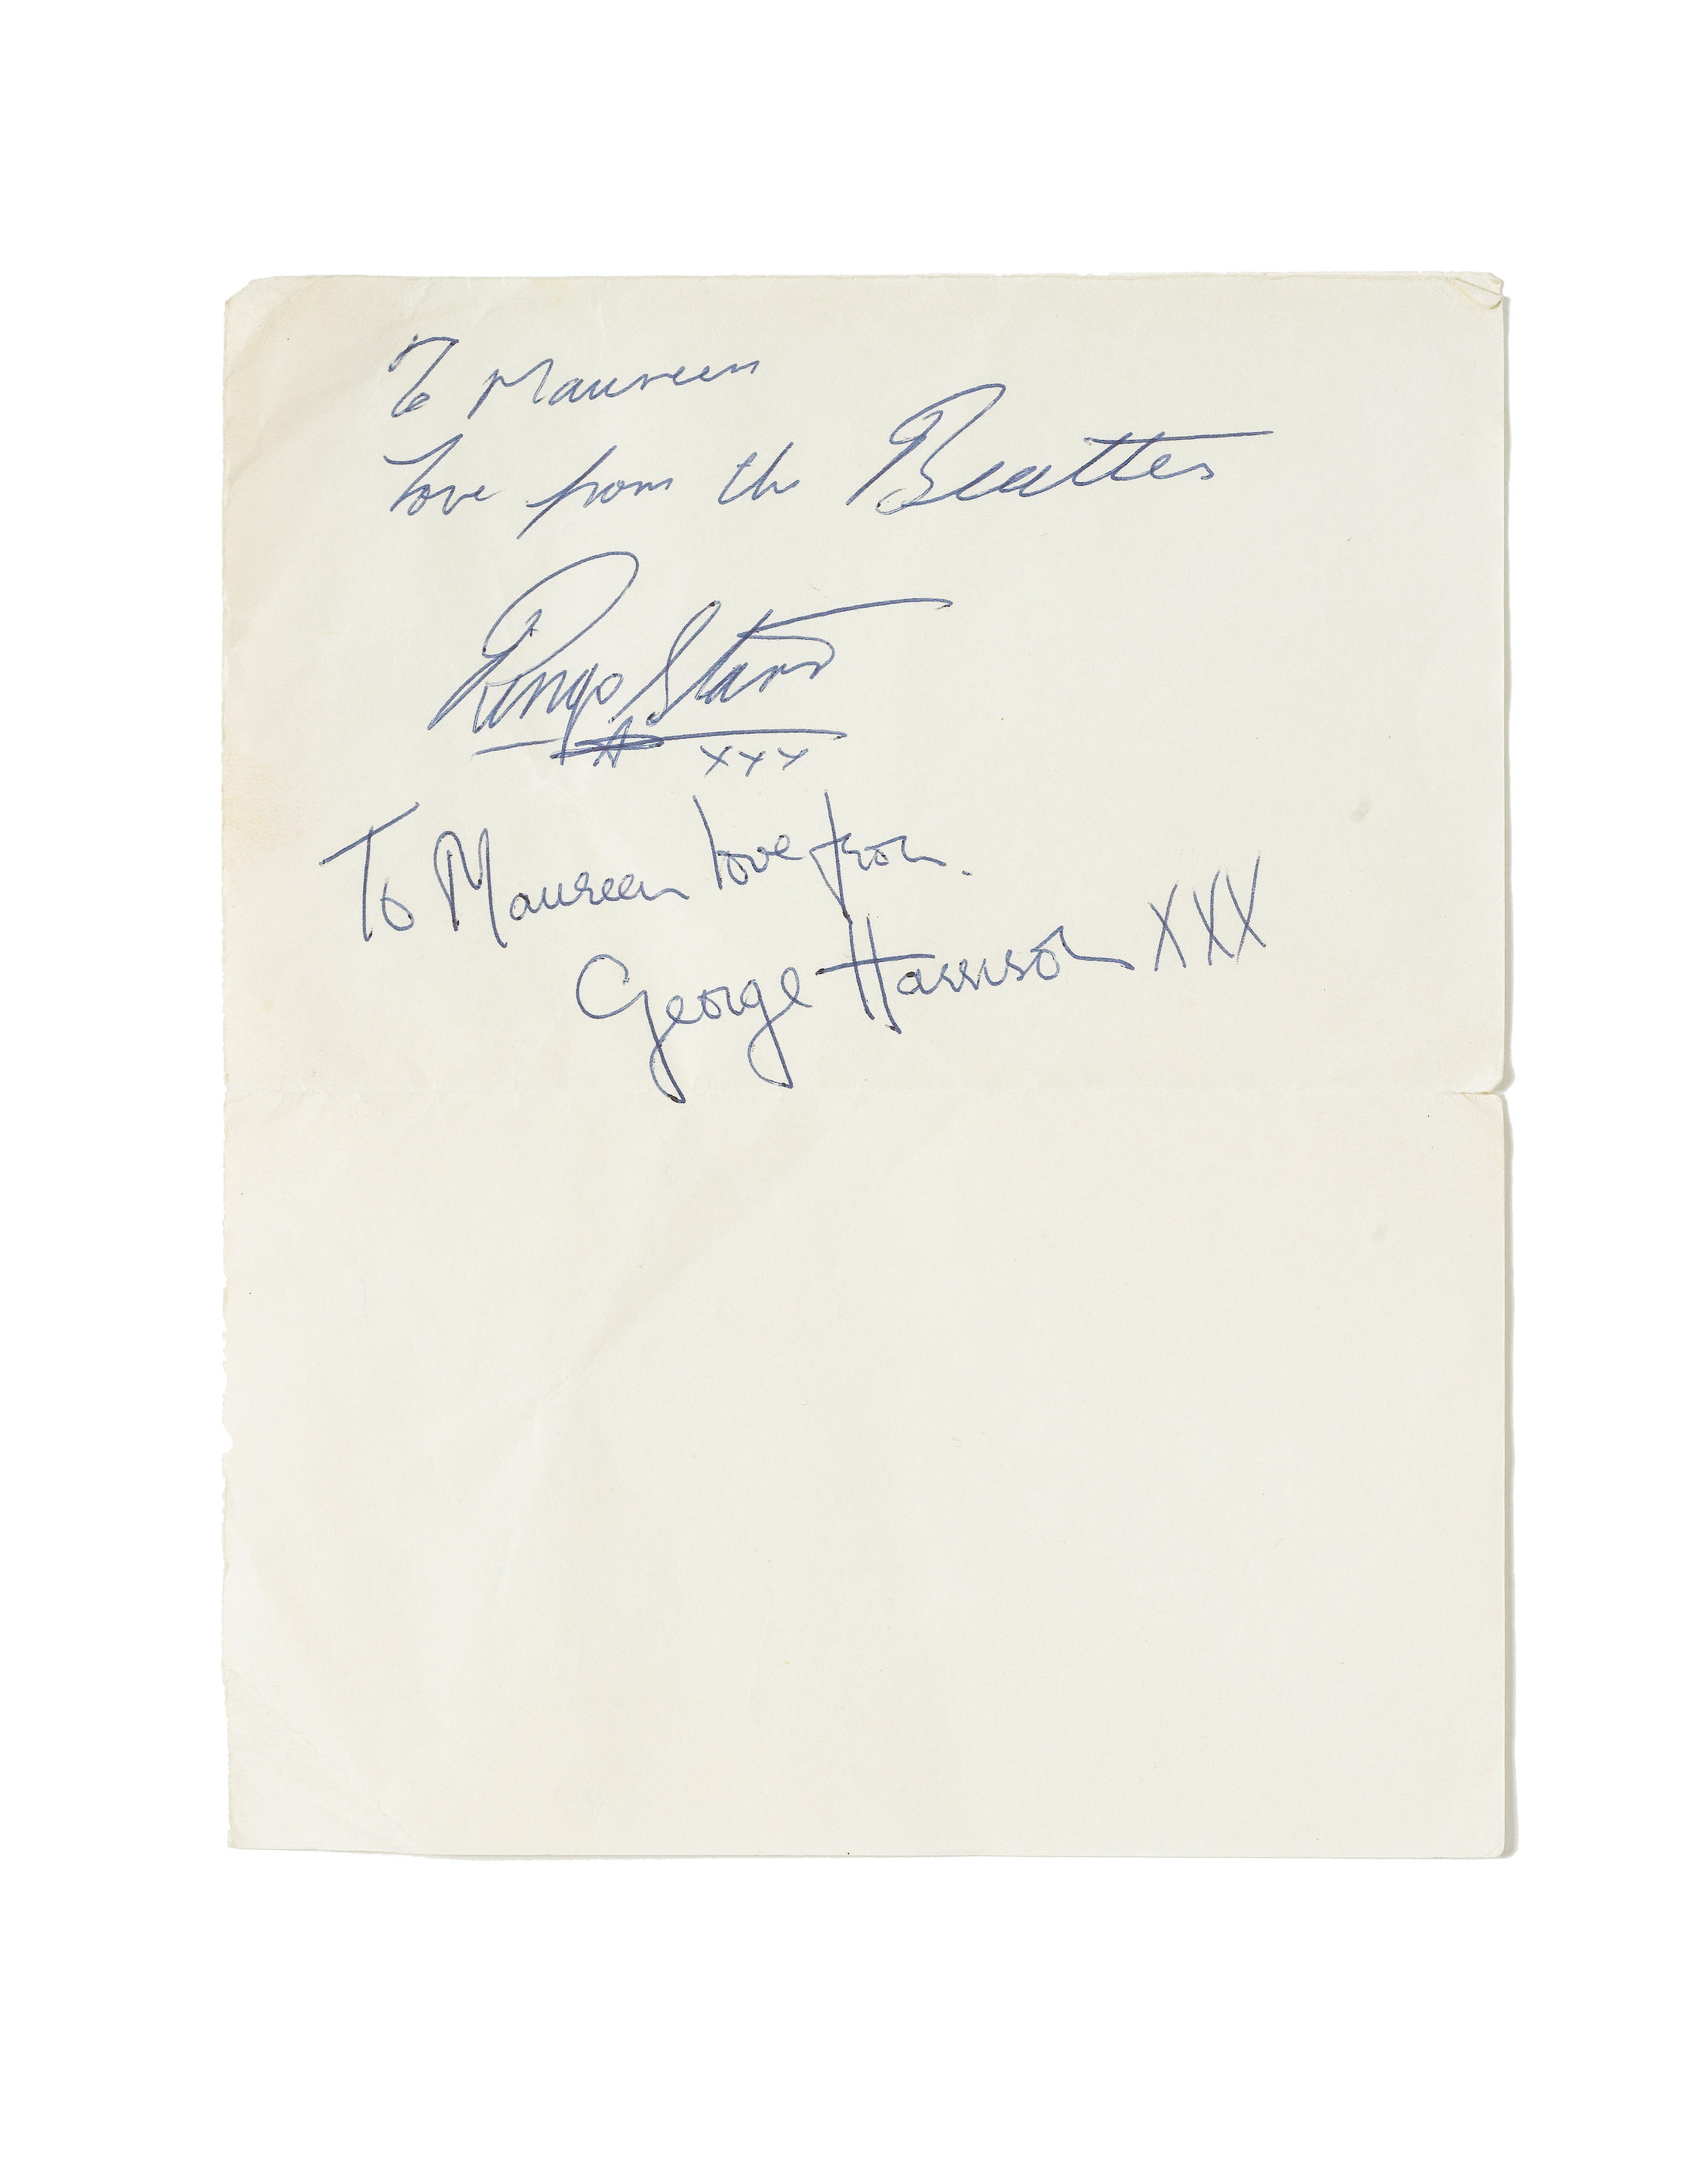 To Maureen
Love from the Beatles
Ringo Starr
xxx
To Maureen love from.
George Harrison XXX